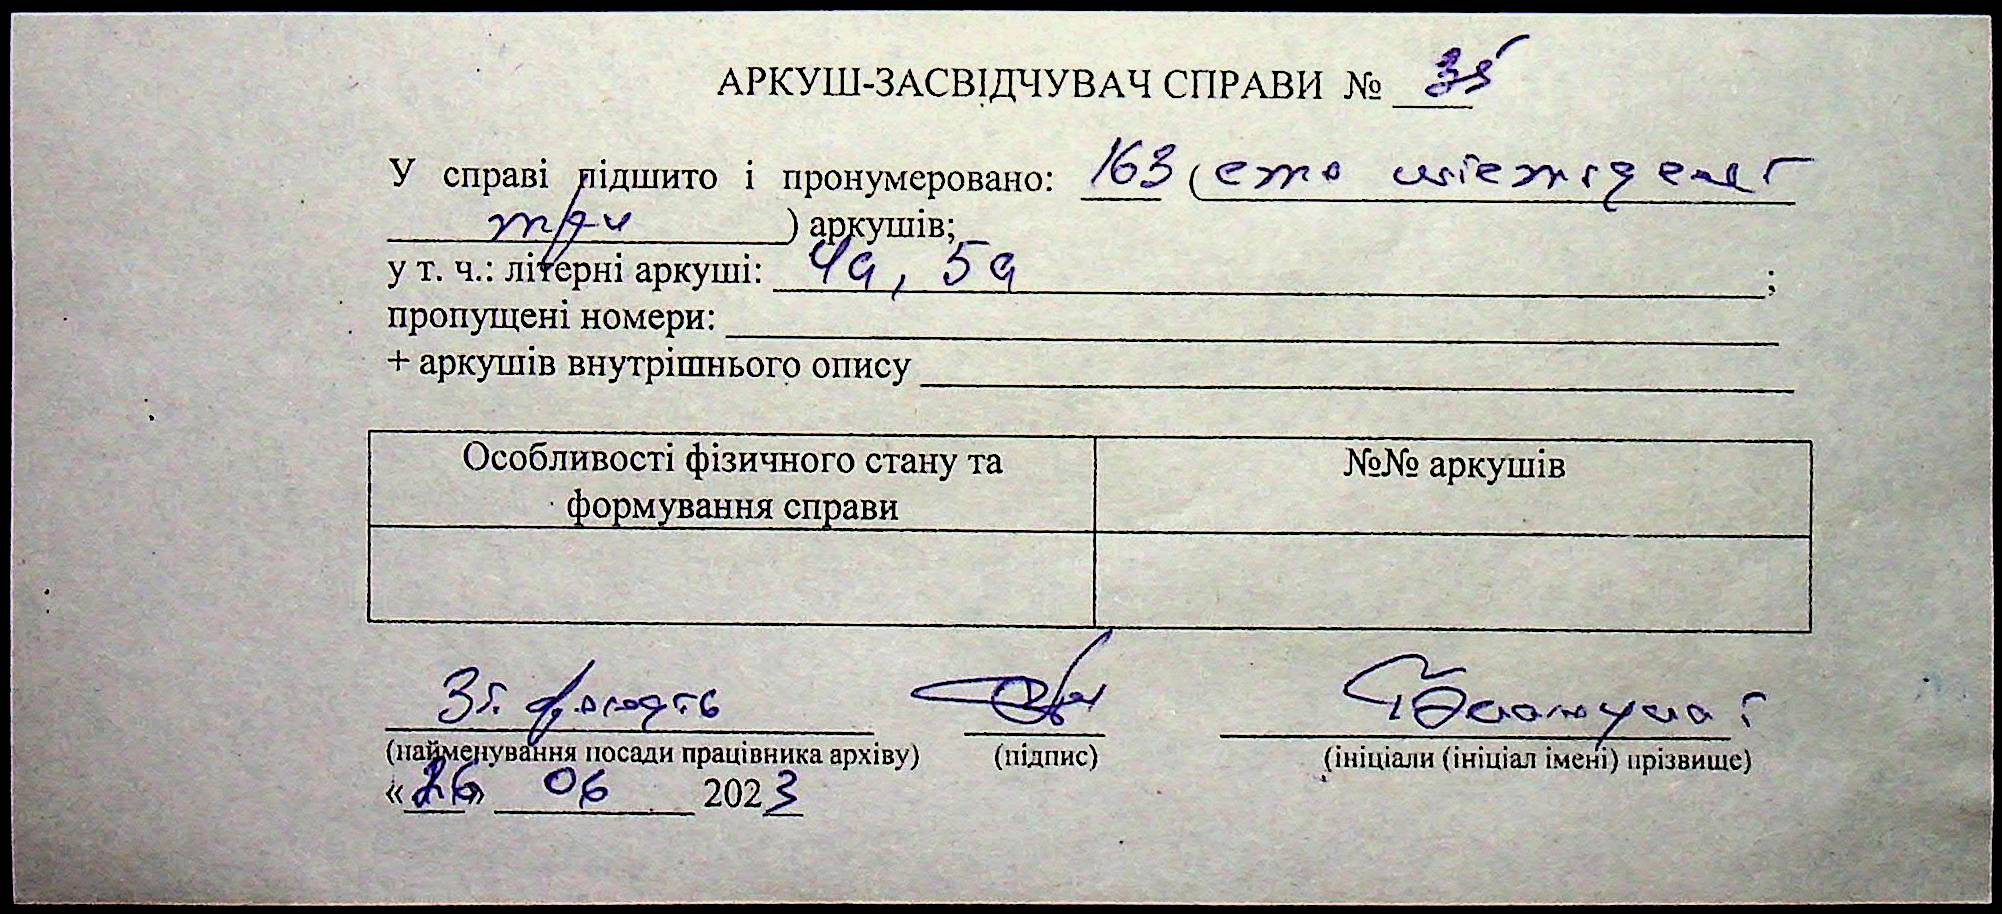 АРКУШ-ЗАСВІДЧУВАЧ СПРАВИ № 35
У справі підшито і пронумеровано: 163 (сто шістдесят
три) аркушів;
у т. ч.: літерні аркуші: 4а, 5а ;
пропущені номери:
+ аркушів внутрішнього опису
Особливості фізичного стану та
формування справи
№№ аркушів
(найменування посади працівника архіву) (підпис) (ініціали (ініціал імені) прізвище)
«26» 06 2023